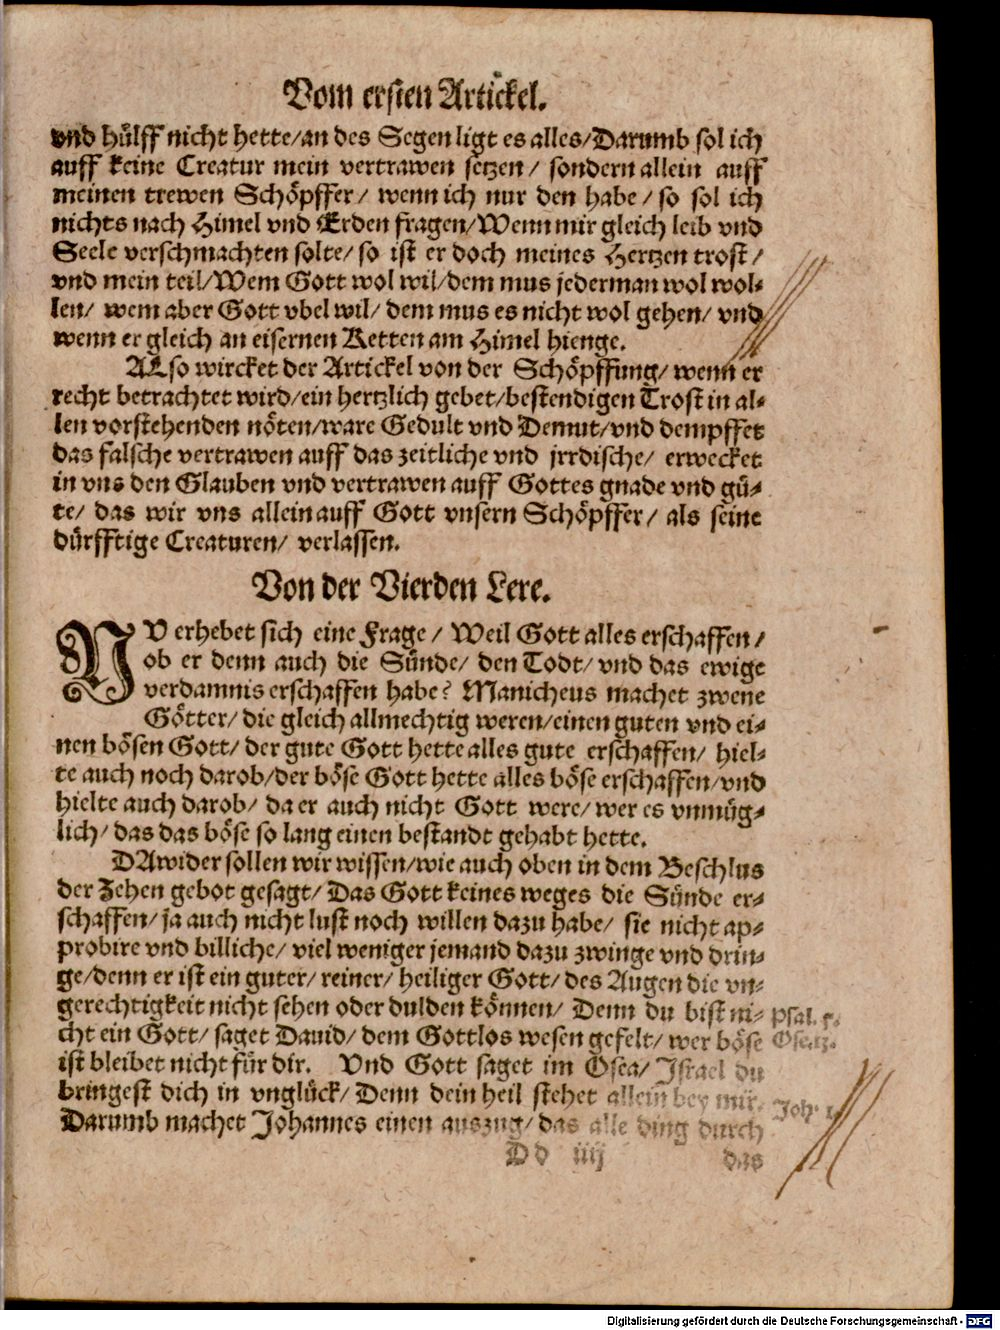 Vom ersten Artickel.
vnd hülff nicht hette/an des Segen ligt es alles/Darumb sol ich
auff keine Creatur mein vertrawen setzen/ sondern allein auff
meinen trewen Schöpffer/ wenn ich nur den habe/ so sol ich
nichts nach Himel vnd Erden fragen/Wenn mir gleich leib vnd
Seele verschmachten solte/ so ist er doch meines Hertzen trost/
vnd mein teil/Wem Gott wol wil/dem mus jederman wol wol-
len/ wem aber Gott vbel wil/ dem mus es nicht wol gehen/ vnd
wenn er gleich an eisernen Ketten am Himel hienge.
ALso wircket der Artickel von der Schöpffung/ wenn er
recht betrachtet wird/ein hertzlich gebet/bestendigen Trost in al-
len vorstehenden nöten/ware Gedult vnd Demut/vnd dempffet
das falsche vertrawen auff das zeitliche vnd jrrdische/ erwecket
in vns den Glauben vnd vertrawen auff Gottes gnade vnd gü-
te/ das wir vns allein auff Gott vnsern Schöpffer/ als seine
dürfftige Creaturen/ verlassen.
Von der Vierden Lere.
NV erhebet sich eine Frage/ Weil Gott alles erschaffen/
ob er denn auch die Sünde/ den Todt/ vnd das ewige
verdamnis erschaffen habe? Manicheus machet zwene
Götter/ die gleich allmechtig weren/einen guten vnd ei-
nen bösen Gott/ der gute Gott hette alles gute erschaffen/ hiel-
te auch noch darob/der böse Gott hette alles böse erschaffen/vnd
hielte auch darob/ da er auch nicht Gott were/ wer es vnmüg-
lich/ das das böse so lang einen bestandt gehabt hette.
DAwider sollen wir wissen/wie auch oben in dem Beschlus
der Zehen gebot gesagt/ Das Gott keines weges die Sünde er-
schaffen/ ja auch nicht lust noch willen dazu habe/ sie nicht ap-
probire vnd billiche/ viel weniger jemand dazu zwinge vnd drin-
ge/denn er ist ein guter/ reiner/ heiliger Gott/ des Augen die vn-
gerechtigkeit nicht sehen oder dulden können/ Denn du bist ni- Psal. 5.
cht ein Gott/ saget Dauid/ dem Gottlos wesen gefelt/ wer böse Osea
ist bleibet nicht für dir. Vnd Gott saget im Osea/ Israel du
bringest dich in vnglück/ Denn dein heil stehet allein bey mir. Joh. 1.
Darumb machet Johannes einen auszug/ das alle ding durch
Dd iiij das
Digitalisierung gefördert durch die Deutsche Forschungsgemeinschaft - DFG